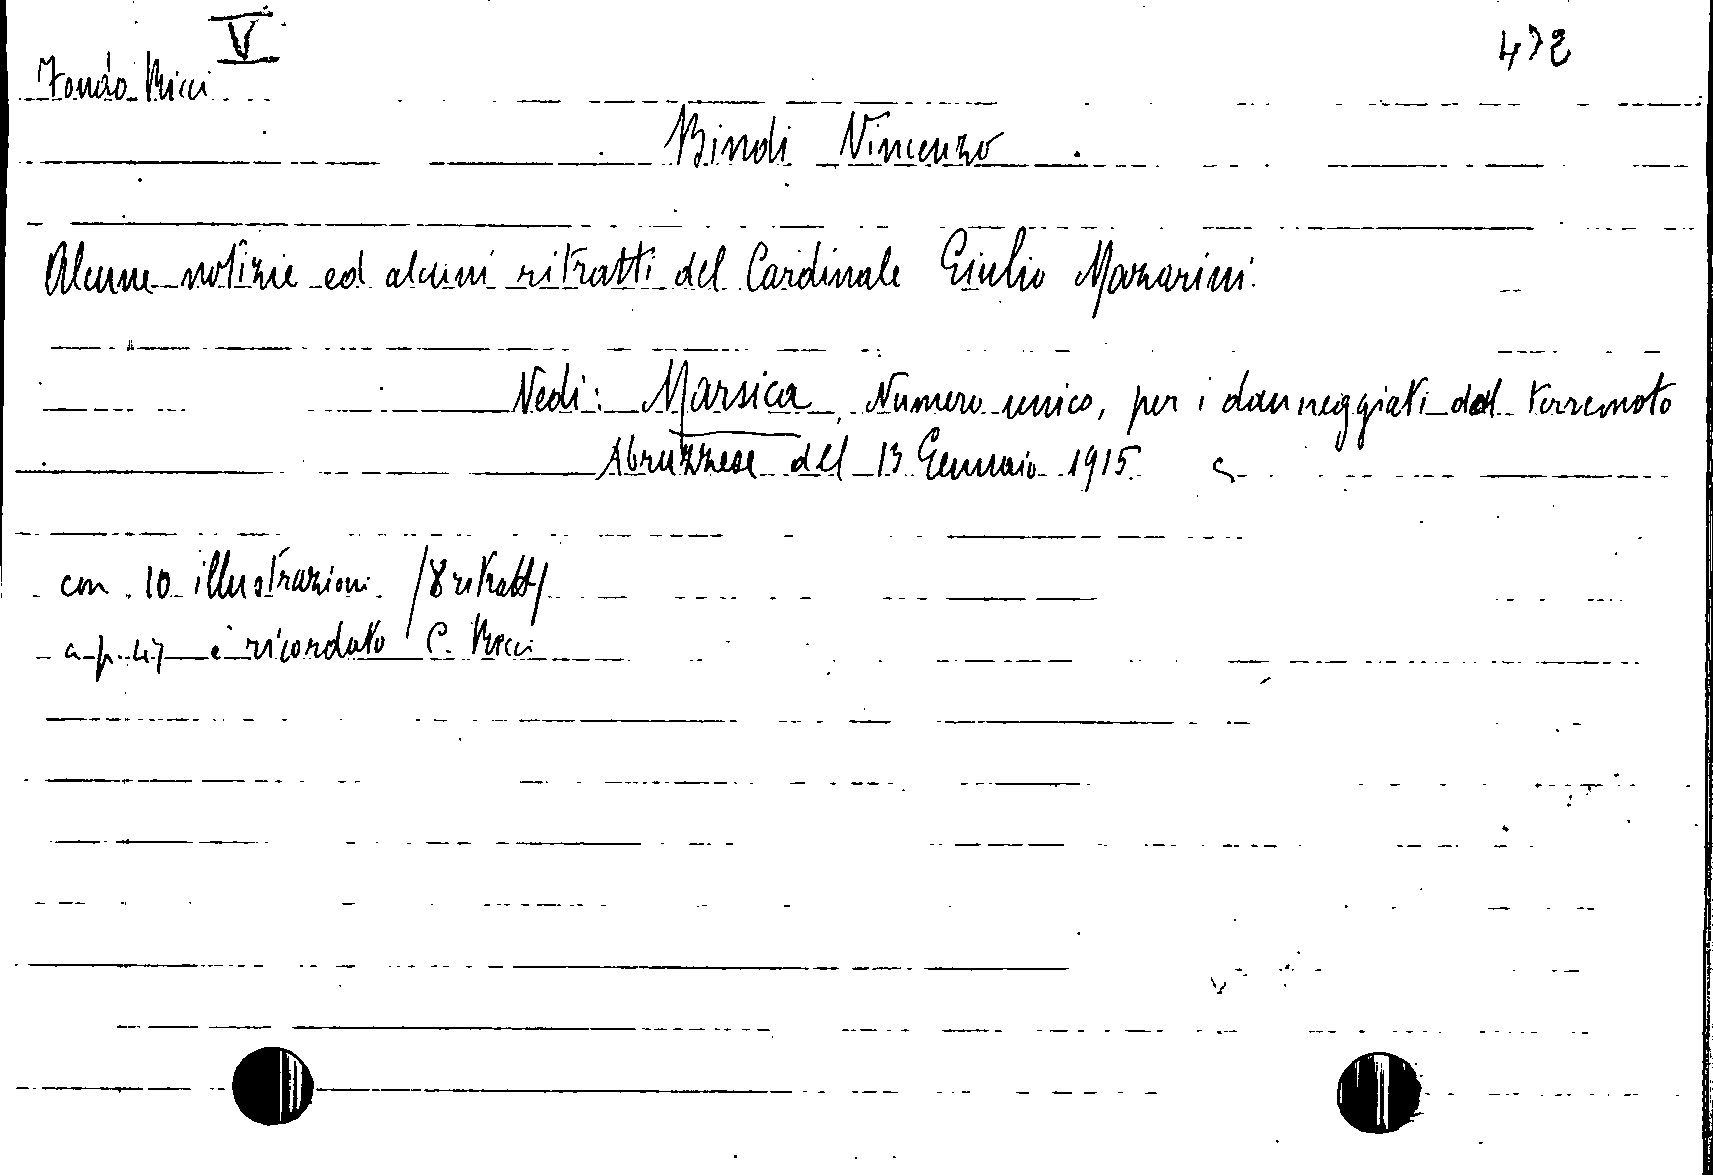 V
Fondo Ricci
Bindi Vincenzo
Alcune notizie ed alcuni ritratti del Cardinale Giulio Mazarini.
Vedi: Marsica, Numero unico, per i danneggiati dal terremoto
Abruzzese del 13 Gennaio 1915.
con 10 illustrazioni /8 ritratti/
a p. 47 è ricordato C. Ricci